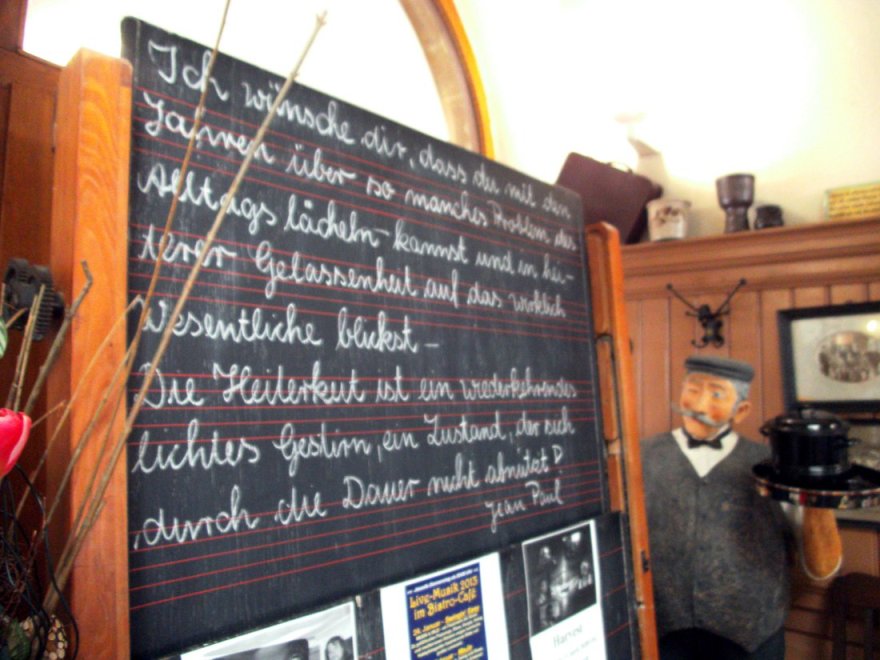 Ich wünsche dir, dass du mit den
Jahren über so manches Problem des
Alltags lächeln - kannst und in hei-
terer Gelassenheit auf das wirklich
Wesentliche blickst -
Die Heiterkeit ist ein wiederkehrendes
lichtes Gestirn, ein Zustand, der sich
durch die Dauer nicht abnützt
Jean Paul
Live-Musik 2013
im Bistro-Café
Harvest